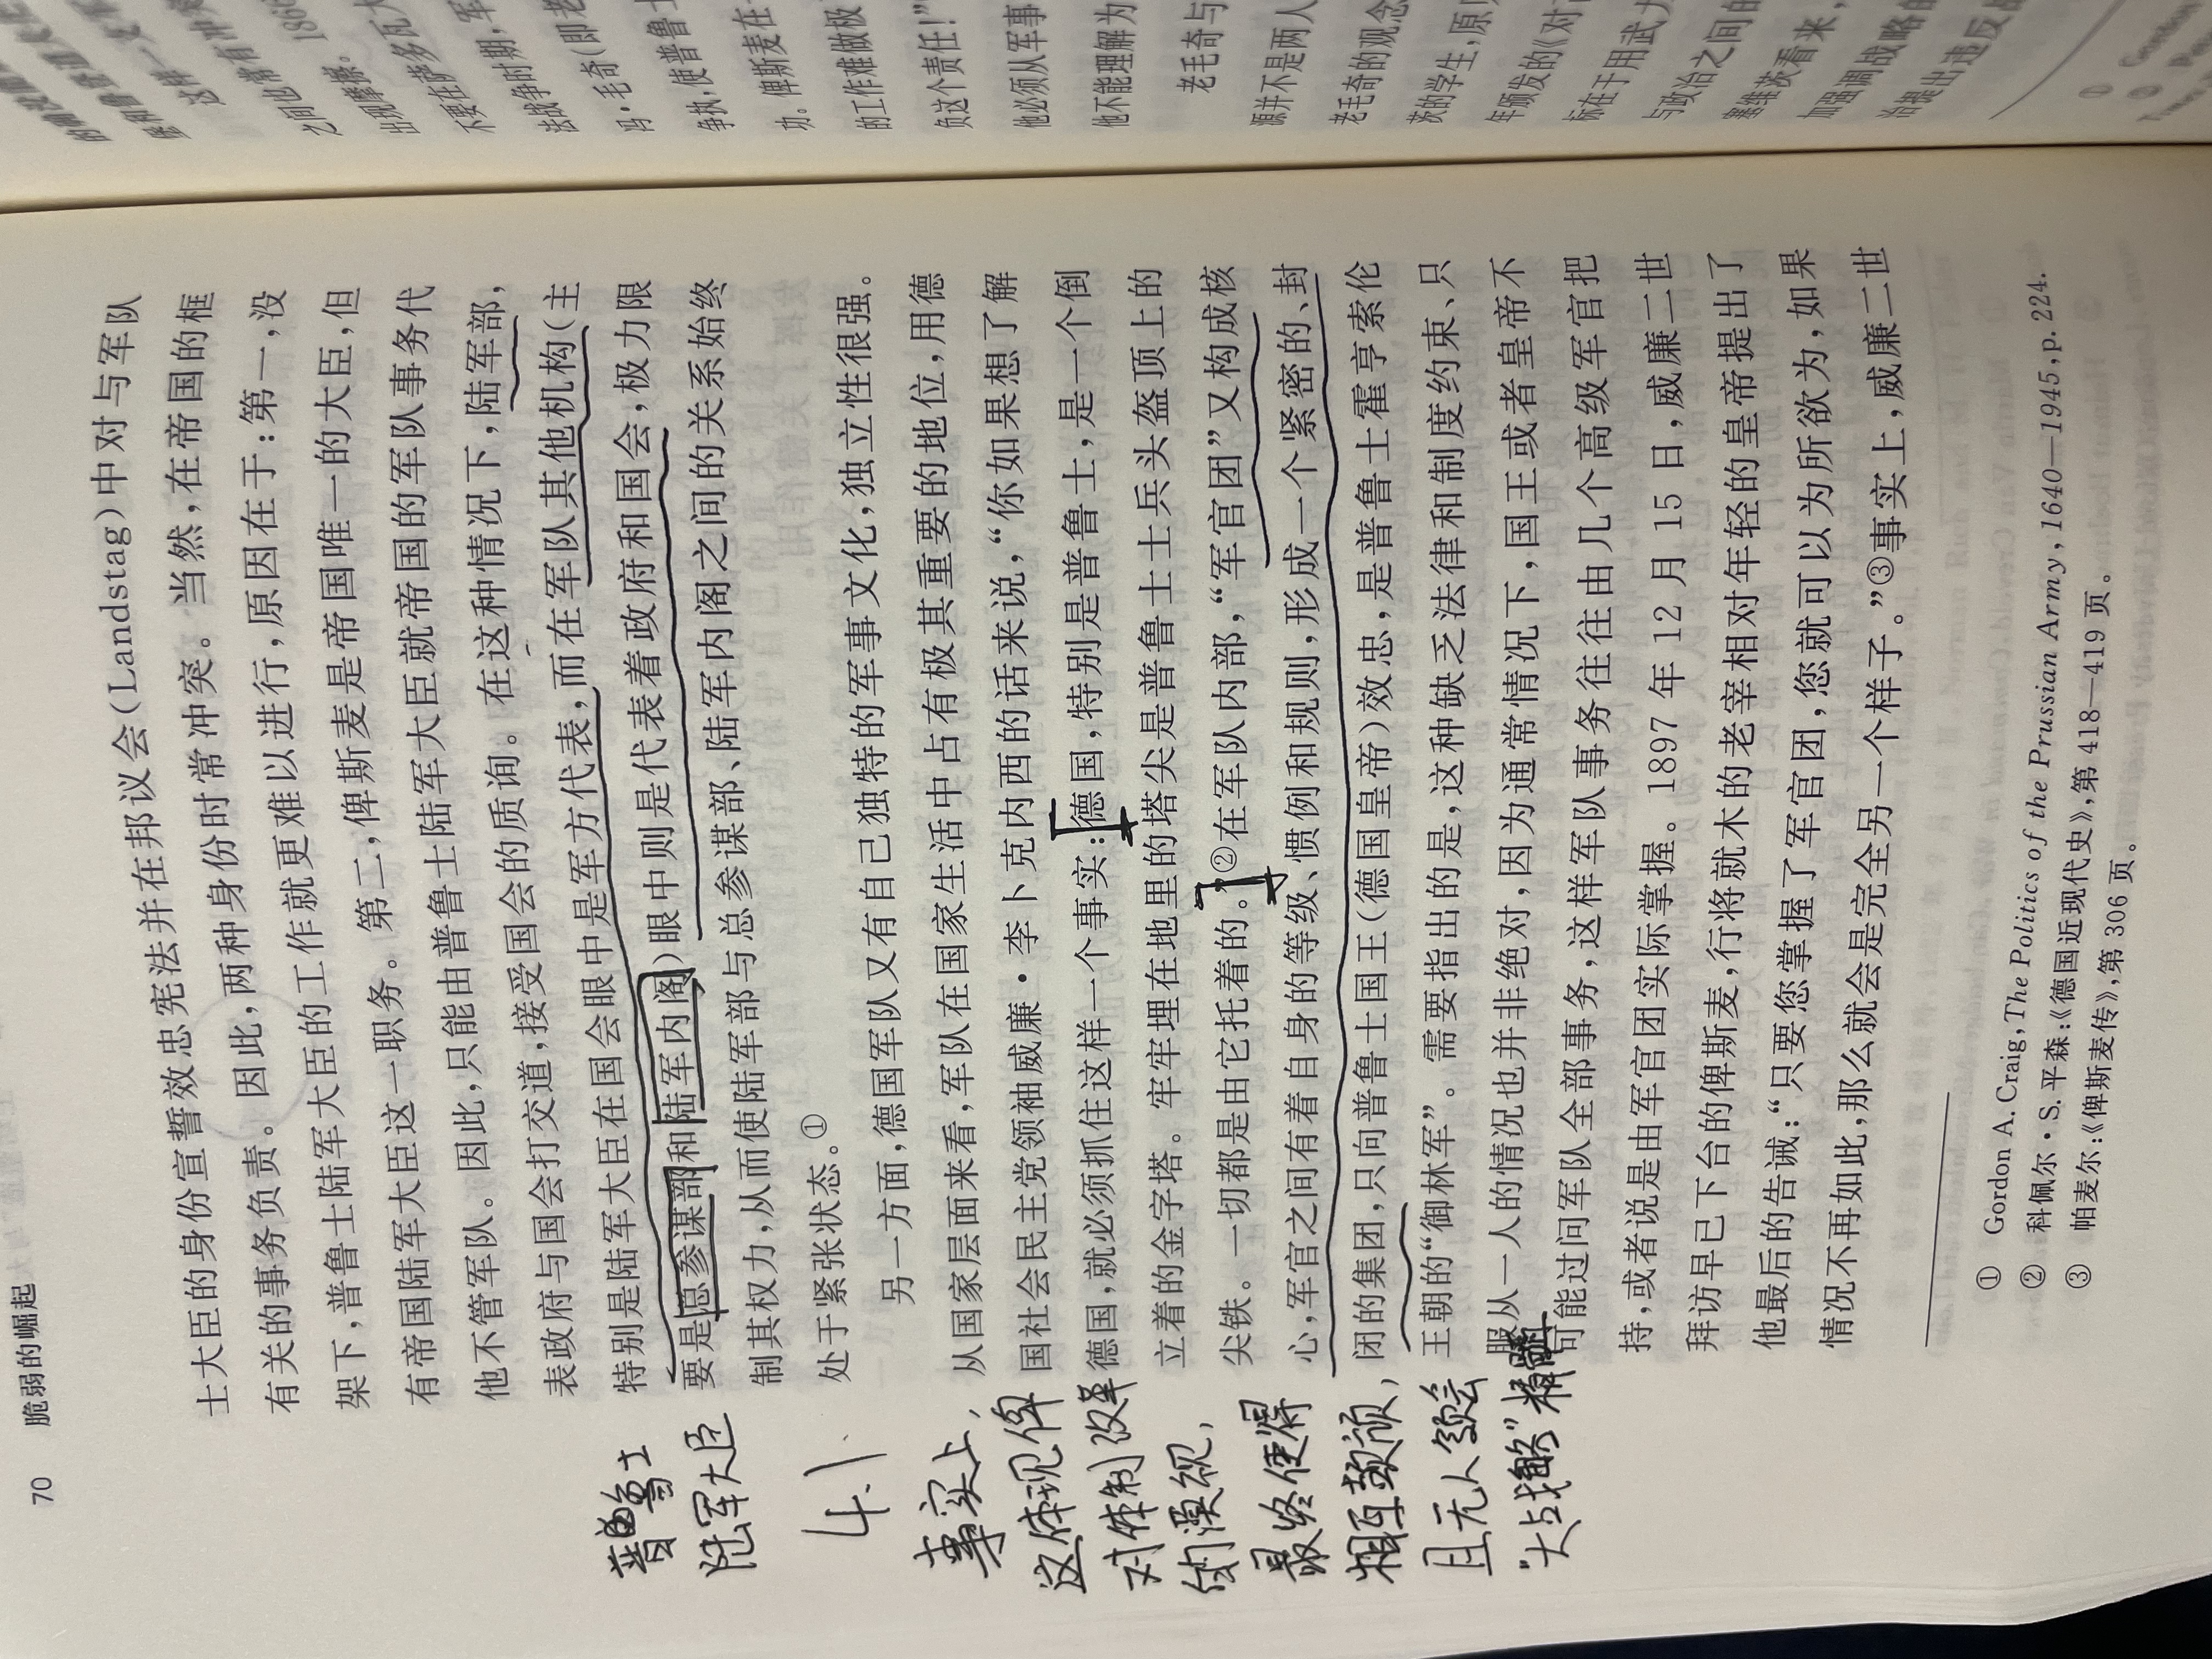 70 脆弱的崛起
士大臣的身份宣誓效忠宪法并在邦议会(Landstag)中对与军队
有关的事务负责。因此,两种身份时常冲突。当然,在帝国的框
架下,普鲁士陆军大臣的工作就更难以进行,原因在于:第一,没
有帝国陆军大臣这一职务。第二,俾斯麦是帝国唯一的大臣,但
他不管军队。因此,只能由普鲁士陆军大臣就帝国的军队事务代
表政府与国会打交道,接受国会的质询。在这种情况下,陆军部,
特别是陆军大臣在国会眼中是军方代表,而在军队其他机构(主
要是总参谋部和陆军内阁)眼中则是代表着政府和国会,极力限
制其权力,从而使陆军部与总参谋部、陆军内阁之间的关系始终
处于紧张状态。①
另一方面,德国军队又有自己独特的军事文化,独立性很强。
从国家层面来看,军队在国家生活中占有极其重要的地位,用德
国社会民主党领袖威廉·李卜克内西的话来说,“你如果想了解
德国,就必须抓住这样一个事实:德国,特别是普鲁士,是一个倒
立着的金字塔。牢牢埋在地里的塔尖是普鲁士士兵头盔顶上的
尖铁。一切都是由它托着的。”②在军队内部,“军官团”又构成核
心,军官之间有着自身的等级、惯例和规则,形成一个紧密的、封
闭的集团,只向普鲁士国王(德国皇帝)效忠,是普鲁士霍亨索伦
王朝的“御林军”。需要指出的是,这种缺乏法律和制度约束、只
服从一人的情况也并非绝对,因为通常情况下,国王或者皇帝不
可能过问军队全部事务,这样军队事务往往由几个高级军官把
持,或者说是由军官团实际掌握。1897 年 12 月 15 日,威廉二世
拜访早已下台的俾斯麦,行将就木的老宰相对年轻的皇帝提出了
他最后的告诫:“只要您掌握了军官团,您就可以为所欲为,如果
情况不再如此,那么就会是完全另一个样子。”③事实上,威廉二世
① Gordon A. Craig, The Politics of the Prussian Army, 1640—1945, p. 224.
② 科佩尔·S. 平森:《德国近现代史》,第 418—419 页。
③ 帕麦尔:《俾斯麦传》,第 306 页。
普鲁士
陆军大臣
4.1
事实上,
这体现俾
对体制改革
的漠视,
最终使得
相互
且无人
“大战略”